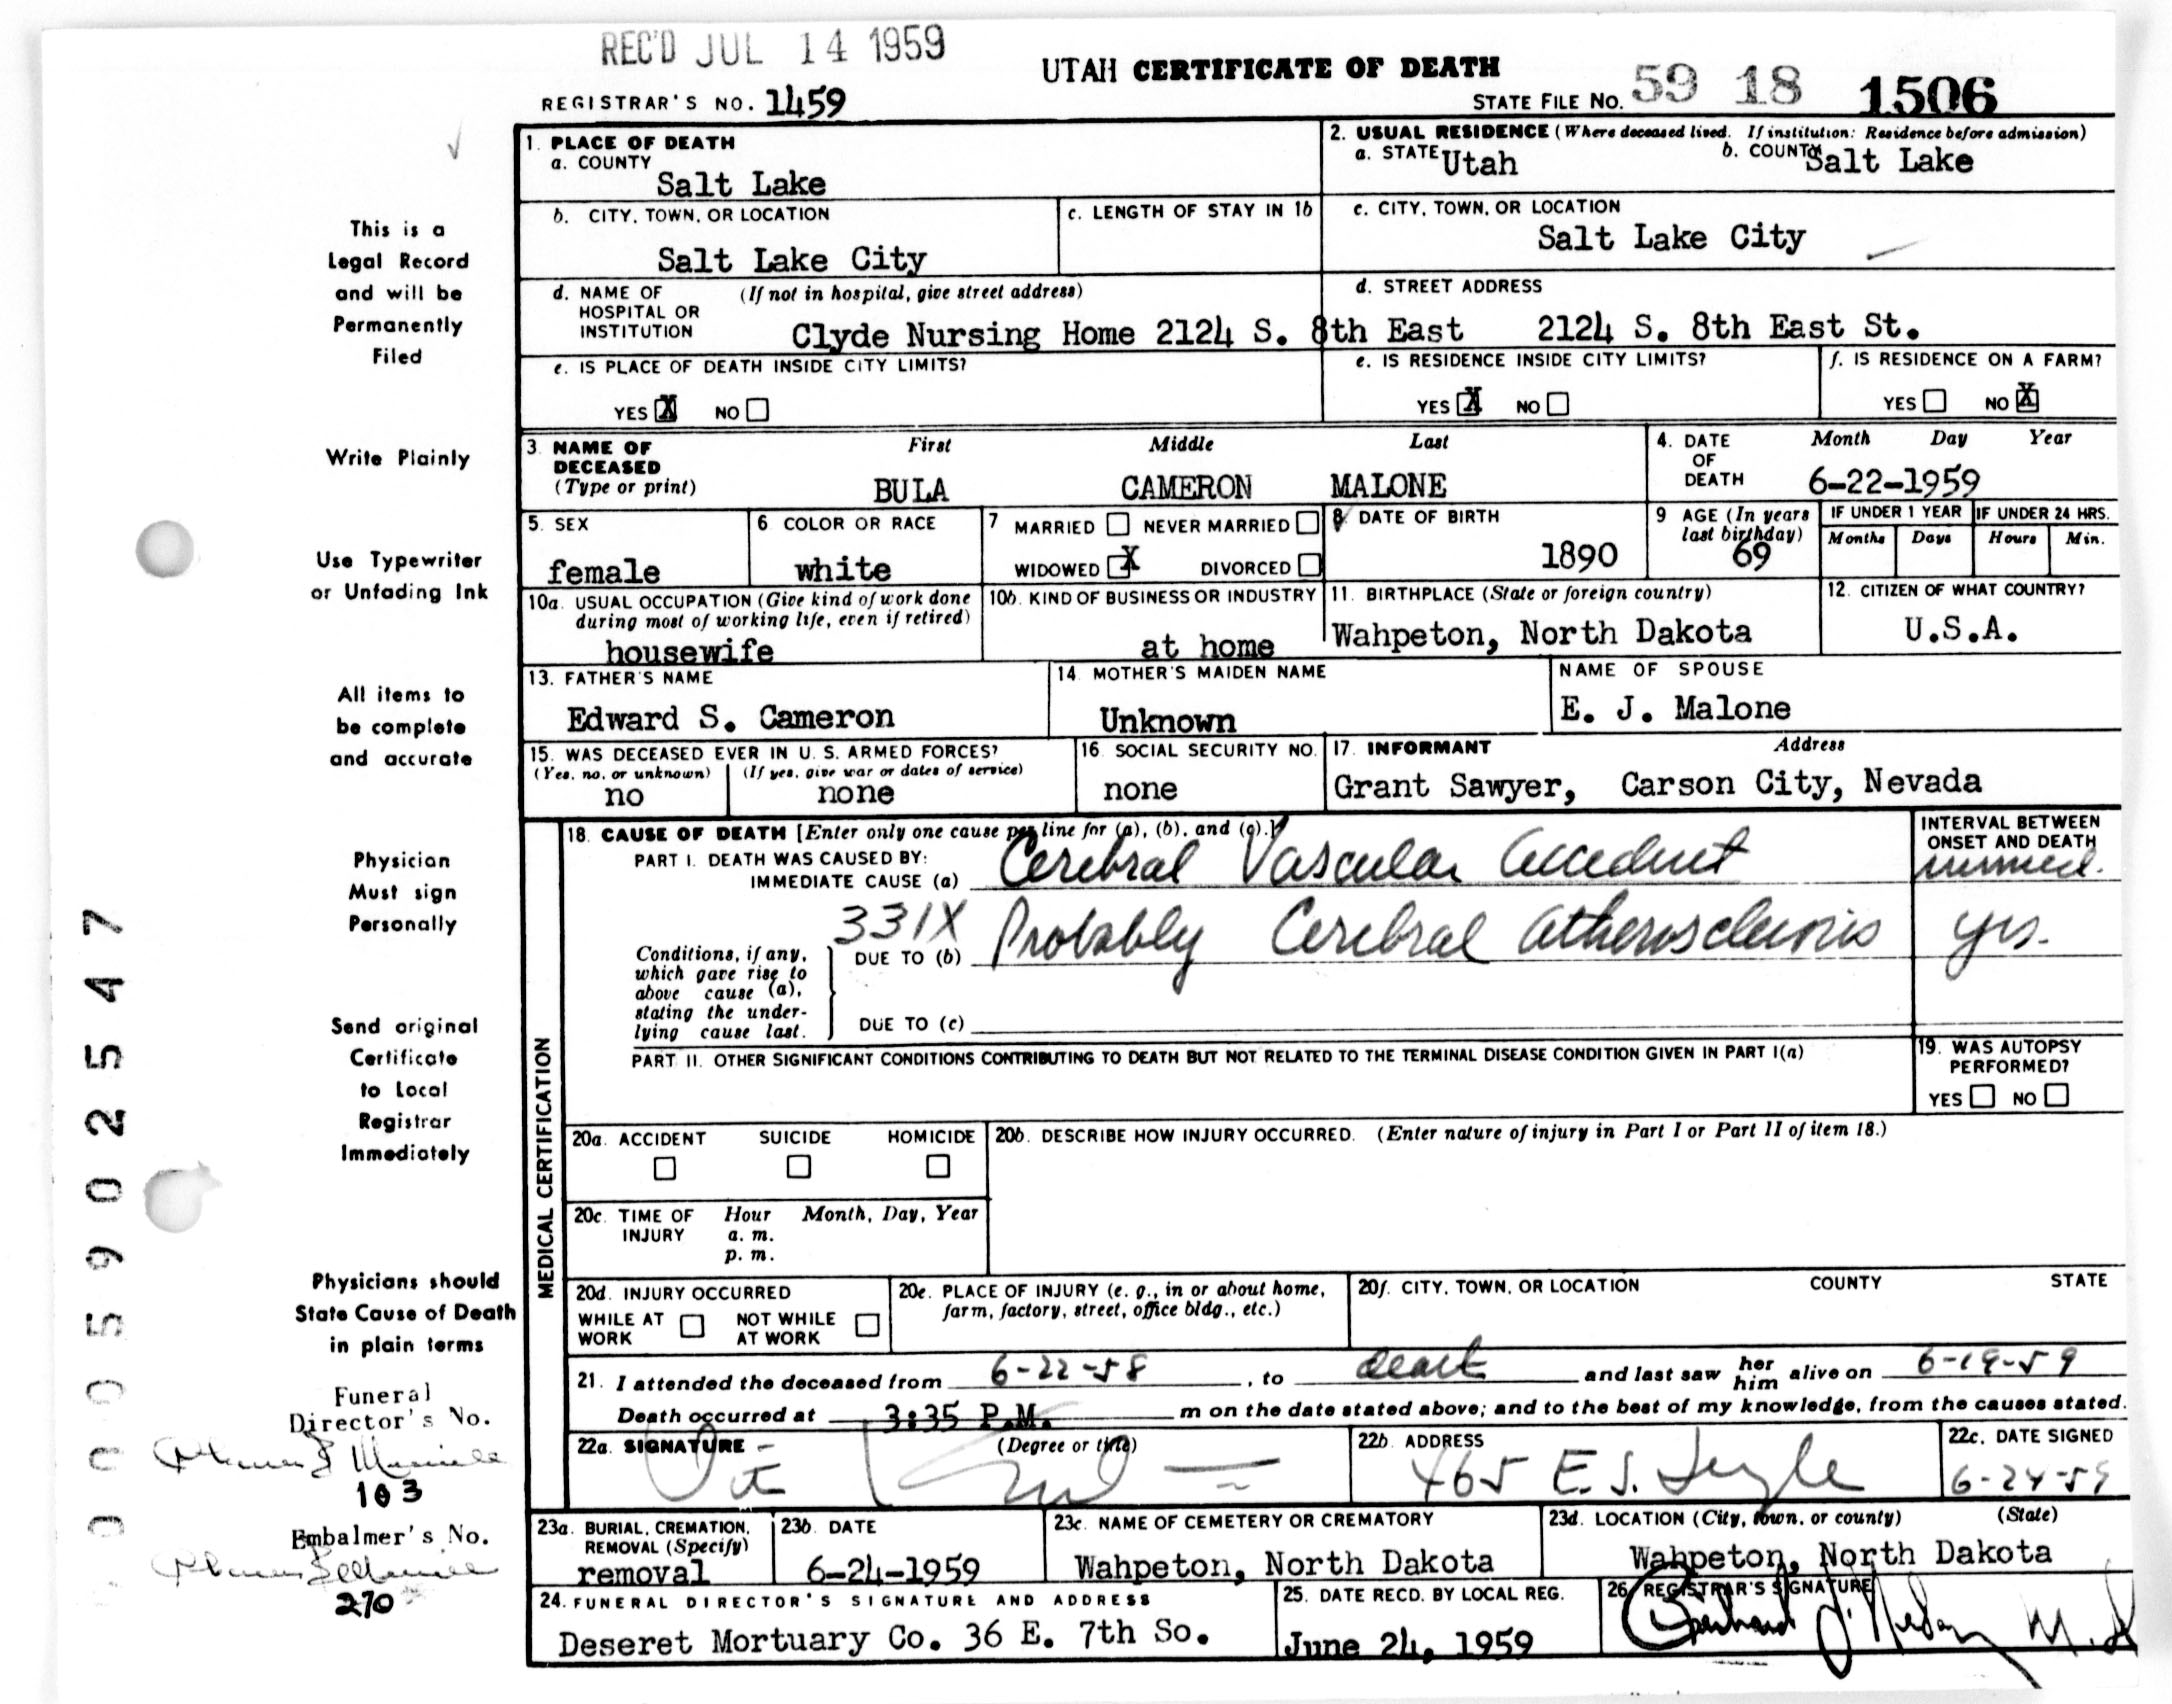 REC'D JUL 14 1959
UTAH CERTIFICATE OF DEATH
REGISTRAR'S NO. 1459
STATE FILE No. 59 18 1506
1. PLACE OF DEATH
a. COUNTY
Salt Lake
2. USUAL RESIDENCE (Where deceased lived. If institution: Residence before admission)
a. STATE Utah b. COUNTY Salt Lake
b. CITY, TOWN, OR LOCATION
Salt Lake City
c. LENGTH OF STAY IN 1b
c. CITY, TOWN, OR LOCATION
Salt Lake City
d. NAME OF HOSPITAL OR INSTITUTION (If not in hospital, give street address)
Clyde Nursing Home 2124 S. 8th East
d. STREET ADDRESS
2124 S. 8th East St.
e. IS PLACE OF DEATH INSIDE CITY LIMITS?
YES X NO
e. IS RESIDENCE INSIDE CITY LIMITS?
YES X NO
f. IS RESIDENCE ON A FARM?
YES NO X
3. NAME OF DECEASED (Type or print)
First Middle Last
BULA CAMERON MALONE
4. DATE OF DEATH
Month Day Year
6-22-1959
5. SEX
female
6 COLOR OR RACE
white
7 MARRIED NEVER MARRIED
WIDOWED X DIVORCED
8. DATE OF BIRTH
1890
9 AGE (In years last birthday)
69
IF UNDER 1 YEAR
Months Days
IF UNDER 24 HRS.
Hours Min.
10a. USUAL OCCUPATION (Give kind of work done during most of working life, even if retired)
housewife
10b. KIND OF BUSINESS OR INDUSTRY
at home
11. BIRTHPLACE (State or foreign country)
Wahpeton, North Dakota
12. CITIZEN OF WHAT COUNTRY?
U.S.A.
13. FATHER'S NAME
Edward S. Cameron
14. MOTHER'S MAIDEN NAME
Unknown
NAME OF SPOUSE
E. J. Malone
15. WAS DECEASED EVER IN U. S. ARMED FORCES?
(Yes, no, or unknown) (If yes, give war or dates of service)
no none
16. SOCIAL SECURITY NO.
none
17. INFORMANT Address
Grant Sawyer, Carson City, Nevada
MEDICAL CERTIFICATION
18. CAUSE OF DEATH [Enter only one cause per line for (a), (b), and (c).]
PART I. DEATH WAS CAUSED BY:
IMMEDIATE CAUSE (a) Cerebral Vascular Accident
INTERVAL BETWEEN ONSET AND DEATH
immed.
331X
Conditions, if any, which gave rise to above cause (a), stating the underlying cause last.
DUE TO (b) Probably Cerebral Atherosclerosis yrs.
DUE TO (c)
PART II. OTHER SIGNIFICANT CONDITIONS CONTRIBUTING TO DEATH BUT NOT RELATED TO THE TERMINAL DISEASE CONDITION GIVEN IN PART I(a)
19. WAS AUTOPSY PERFORMED?
YES NO
20a. ACCIDENT SUICIDE HOMICIDE
20b. DESCRIBE HOW INJURY OCCURRED. (Enter nature of injury in Part I or Part II of item 18.)
20c. TIME OF INJURY Hour Month, Day, Year
a. m.
p. m.
20d. INJURY OCCURRED
WHILE AT WORK NOT WHILE AT WORK
20e. PLACE OF INJURY (e. g., in or about home, farm, factory, street, office bldg., etc.)
20f. CITY, TOWN, OR LOCATION COUNTY STATE
21. I attended the deceased from 6-22-58, to death and last saw her him alive on 6-19-59
Death occurred at 3:35 P.M. m on the date stated above; and to the best of my knowledge, from the causes stated.
22a. SIGNATURE (Degree or title)
22b. ADDRESS
465 E. S. Temple
22c. DATE SIGNED
6-24-59
23a. BURIAL, CREMATION, REMOVAL (Specify)
removal
23b. DATE
6-24-1959
23c. NAME OF CEMETERY OR CREMATORY
Wahpeton, North Dakota
23d. LOCATION (City, town, or county) (State)
Wahpeton, North Dakota
24. FUNERAL DIRECTOR'S SIGNATURE AND ADDRESS
Deseret Mortuary Co. 36 E. 7th So.
25. DATE RECD. BY LOCAL REG.
June 24, 1959
26. REGISTRAR'S SIGNATURE
M.D.
This is a
Legal Record
and will be
Permanently
Filed
Write Plainly
Use Typewriter
or Unfading Ink
All items to
be complete
and accurate
Physician
Must sign
Personally
Send original
Certificate
to Local
Registrar
Immediately
Physicians should
State Cause of Death
in plain terms
Funeral
Director's No.
103
Embalmer's No.
270
005902547